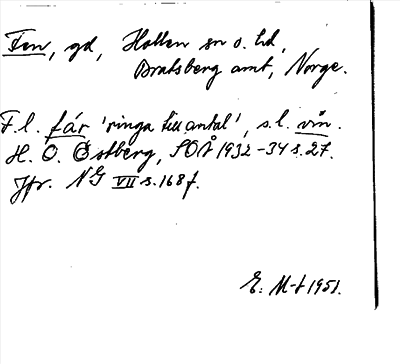 Fen, gd, Hollen sn o. hd,
Bratsberg amt, Norge.
F.l. fár 'ringa till antal', s.l. vin.
H. O. Östberg, SOÅ 1932-34 s. 27.
Jfr. NG VII s. 168 f.
E. M-t 1951.